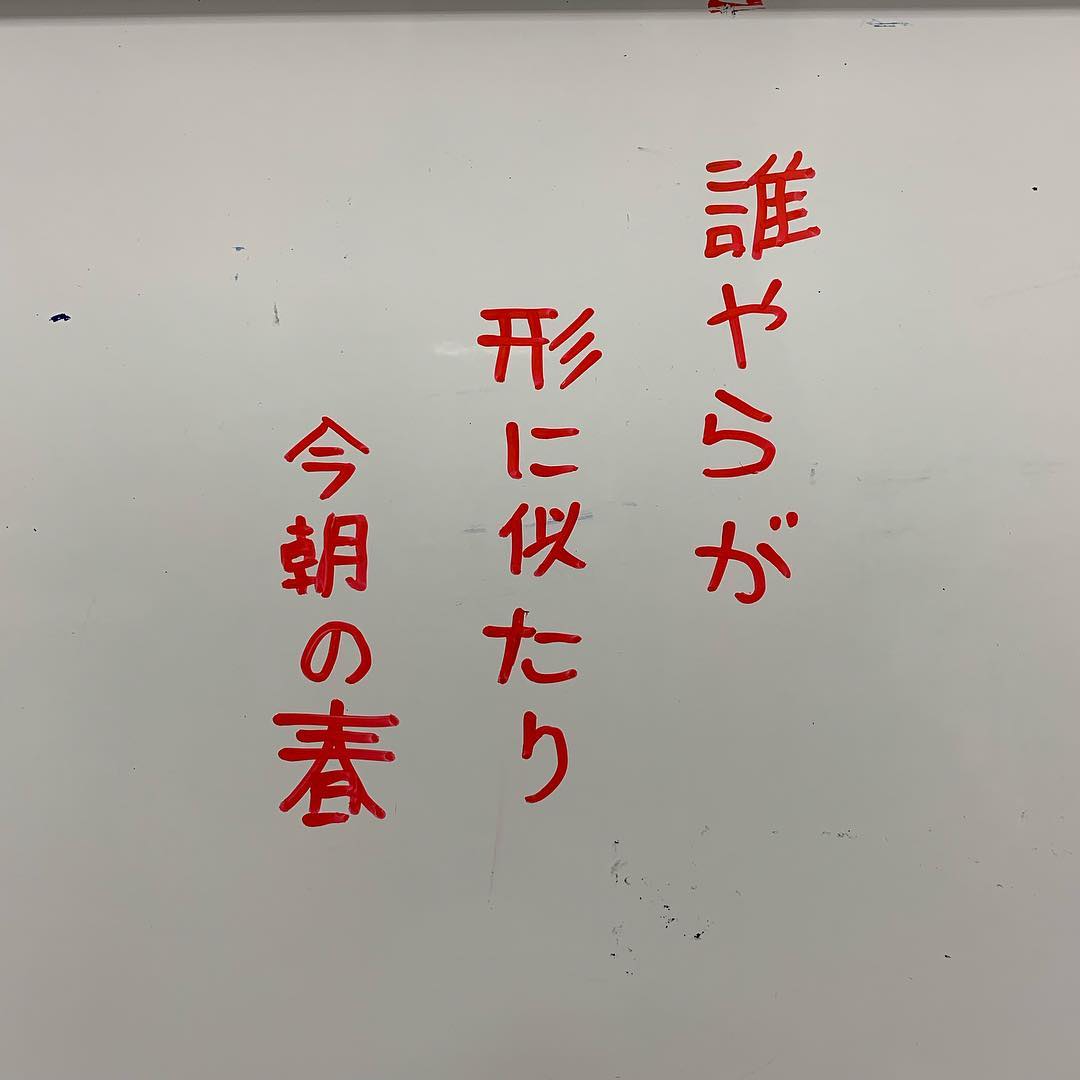 誰やらが
形に似たり
今朝の春